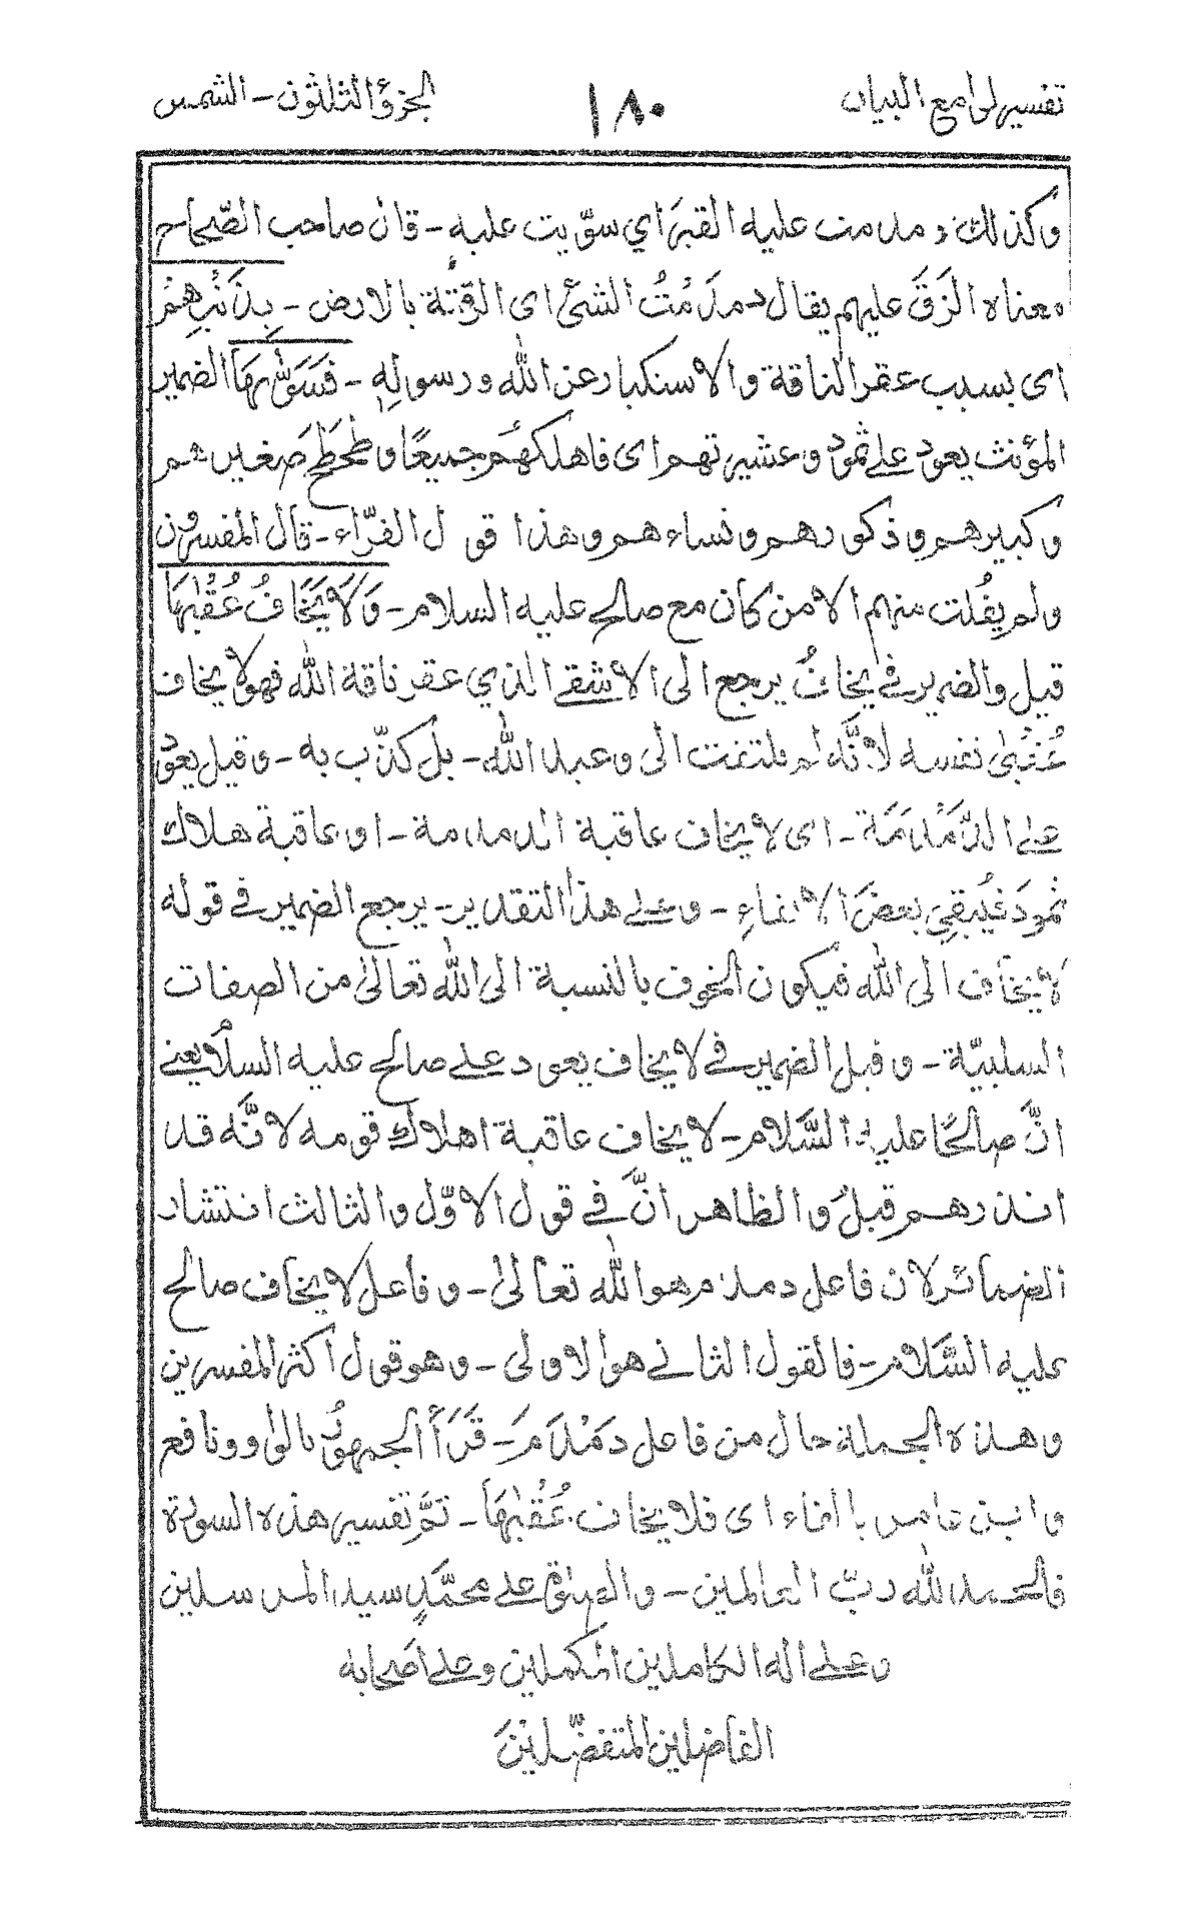 تفسير لوامع البيان ١٨٠ الجزؤ الثلثون - الشمس
وكذلك دمدمت عليه القبر اي سوّيت عليه - قال صاحب الصّحاح
معناه الزَقَ عليهم يقال دمدَمْتُ الشئ اى الزقتة بالارض - بِذَنْبِهِمْ
اى بسبب عقر الناقة والاستكبار عن الله ورسولهِ - فَسَوّٰىهَا الضمير
المؤنث يعود على ثمود وعشيرتهم اى فاهلكهُم جميعًا وطَحطَحَ صَغيرهم
وكبيرهم وذكورهم ونساءهم وهذا قول الفرّاء - قال المفسرون
ولم يفُلت منهم الا من كان مع صالح عليه السلام - وَلَا يَخَافُ عُقْبٰهَا
قيل والضمير في يخافُ يرجع الى الاشقے الذي عقر ناقة الله فهو لا يخاف
عُقبىٰ نفسه لانّه لم يلتفت الى وعيد الله - بل كذّب به - وقيل يعود
على الدَّمْدَمَة - اى لا يخاف عاقبة الدمدمة - او عاقبة هلاك
ثمودَ فيُبقِيَ بعضَ الابقاءِ - وعلى هذا التقدير - يرجع الضمير في قوله
لا يخاف الى الله فيكون الخوف بالنسبة الى الله تعالىٰ من الصفات
السلبيّة - وقيل الضمير في لا يخاف يعود على صالح عليه السلام يعنے
انّ صالحًا عليه السَّلام - لا يخاف عاقبة اهلاك قومه لانّه قد
انذرهم قبلُ والظاهر انَّ في قول الاوّل والثالث انتشار
الضمائر لان فاعل دمدم هو الله تعالىٰ - وفاعل لا يخاف صالح
عليه السَّلام - فالقول الثاني هو الاولى - وهو قول اكثر المفسرين
وهذه الجملة حال من فاعل دَمْدَمَ - قَرَأَ الجمهورُ بالواو ونافع
وابن عامر بالفاء اى فلا يخاف عُقْبٰهَا - تمّ تفسير هذه السورة
فالحمد لله ربّ العالمين - والصلوٰة على محمّدٍ سيد المرسلين
وعلى اله الكاملين المكملين وعلى اصحابه
الفاضلين المتفضّلِيْنَ